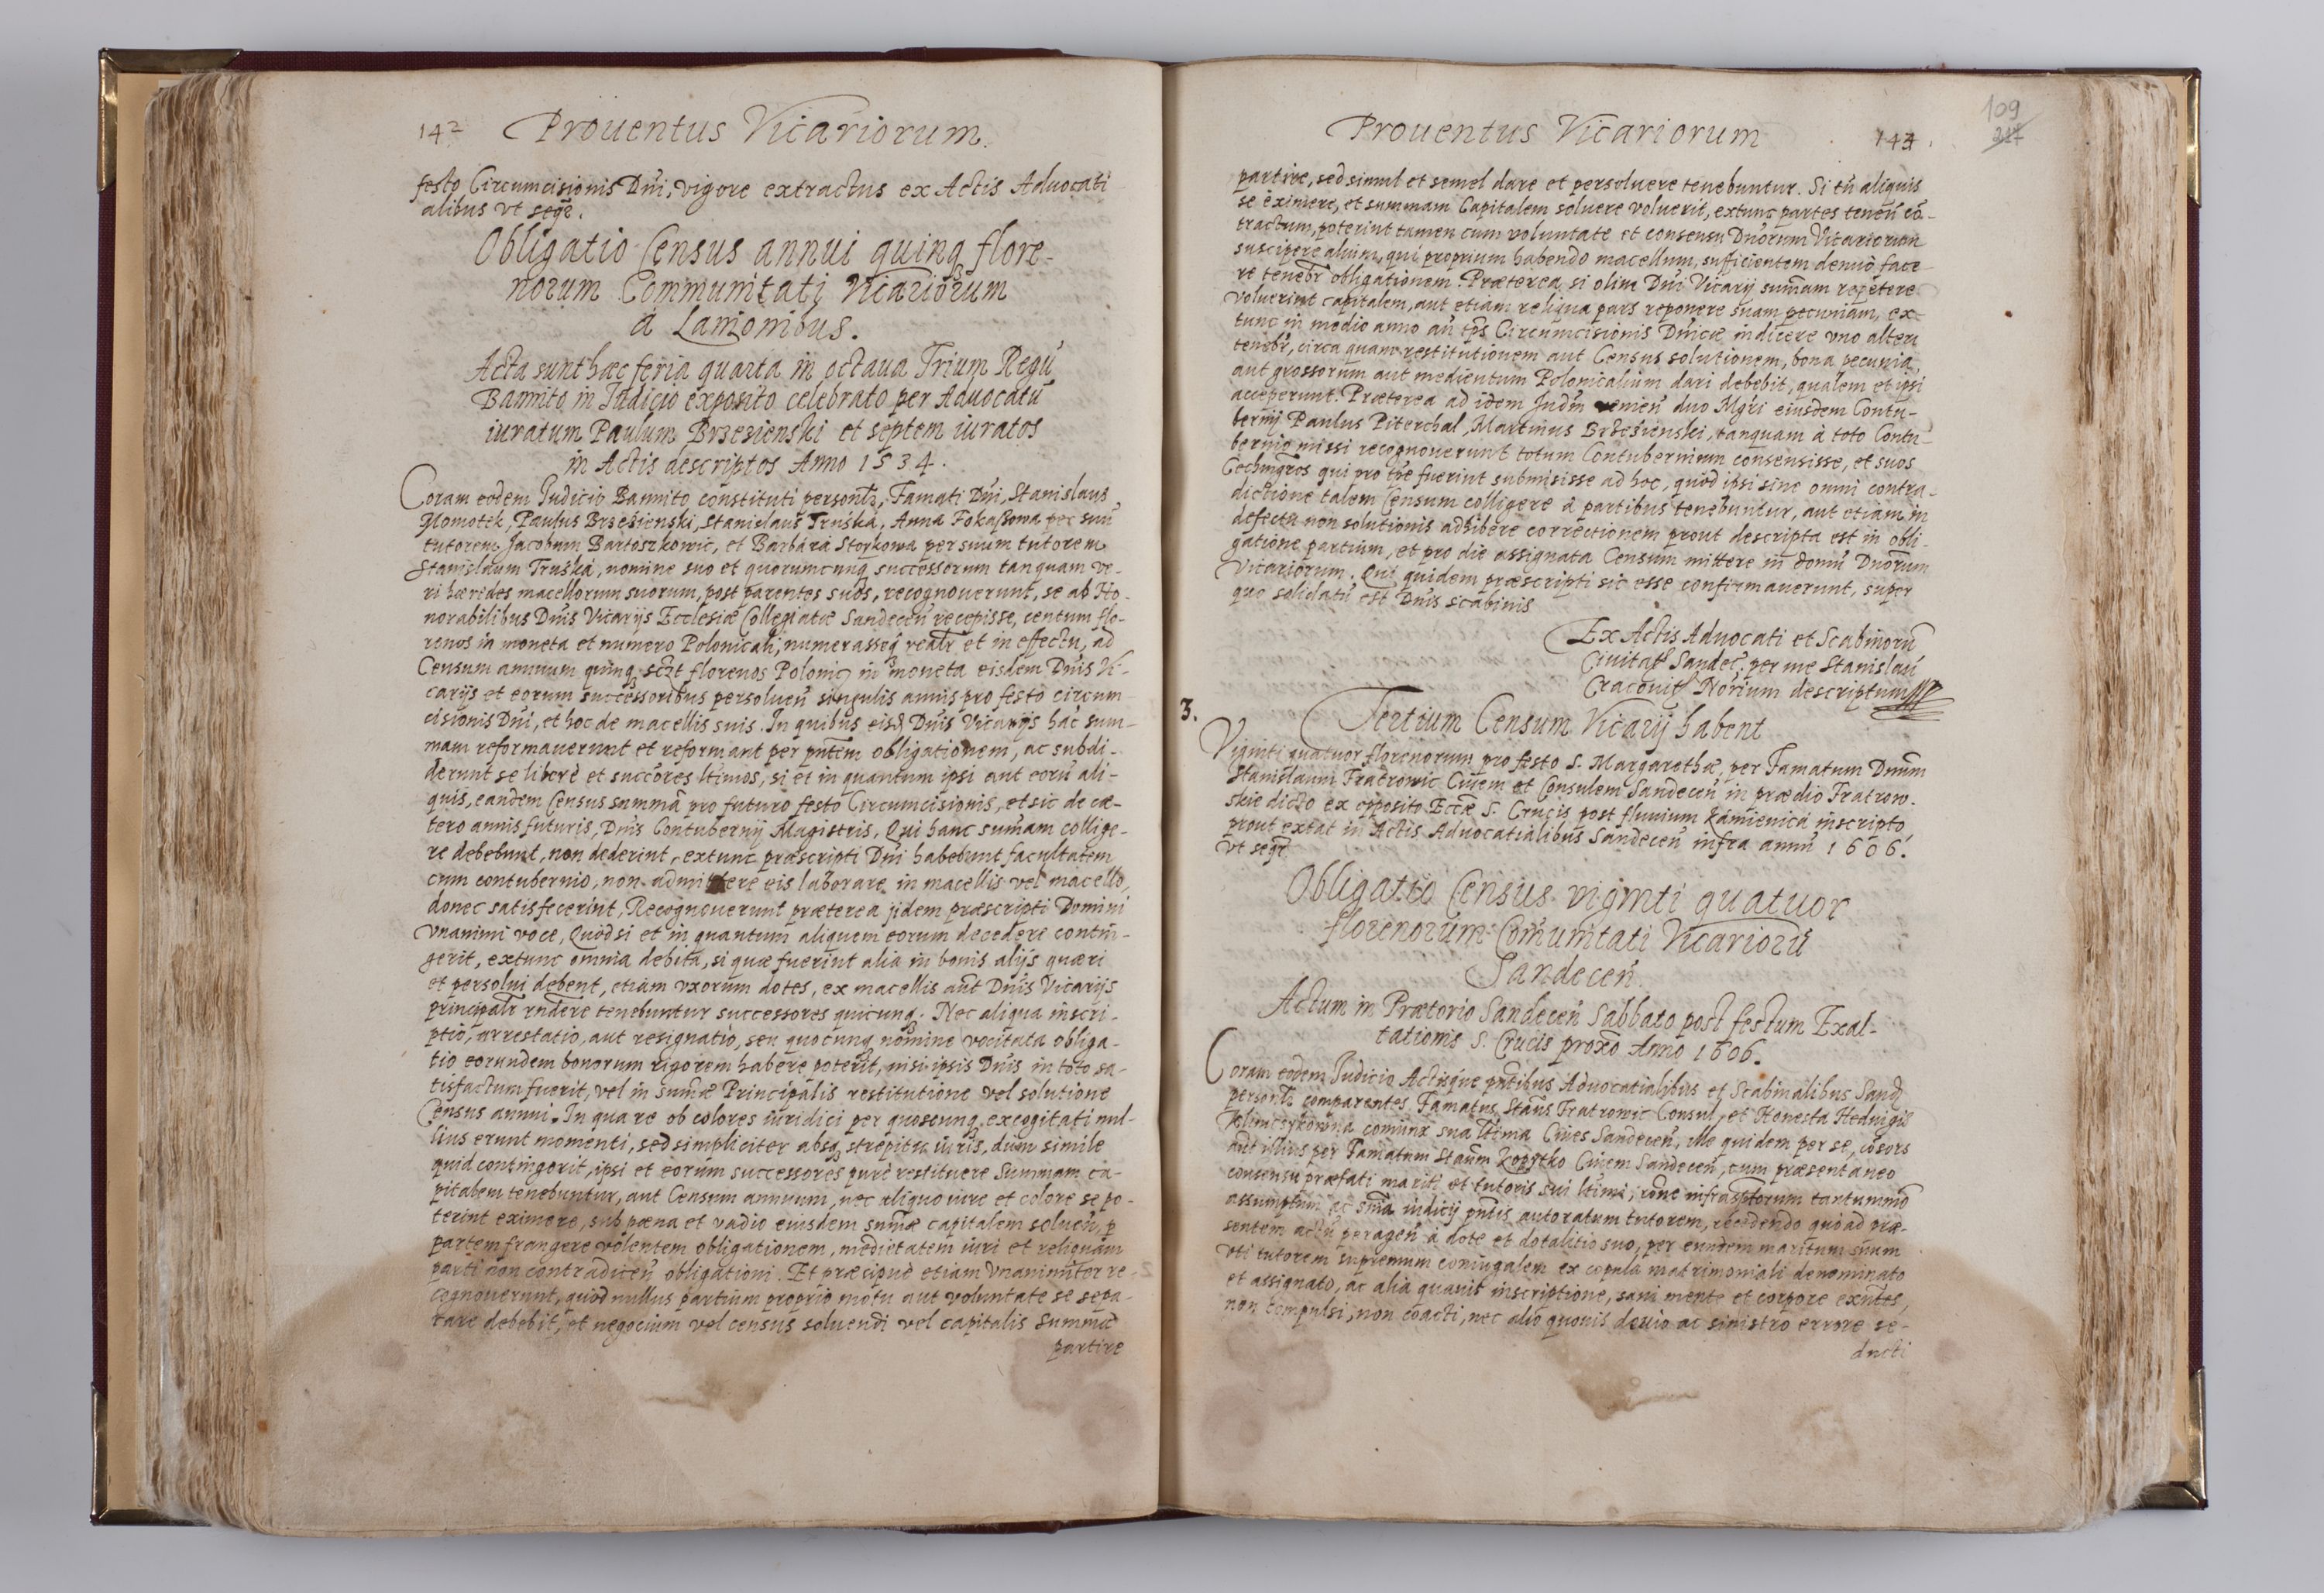 142 Prouentus Vicariorum.
festo Circumcisionis Dñi, vigore extractus ex Actis Aduocati
alibus vt seqr̃.
Obligatio Census annui quinq flore-
norum Communitati Vicariorum
à Lanionibus.
Acta sunt hæc feria quarta in octaua Trium Regũ
Bannito in Iudicio exposito celebrato per Aduocatũ
iuratum Paulum Brzezienski et septem iuratos
in Actis descriptos Anno 1534.
Coram eodem Iudicio Bannito constituti personlr̃, Famati Dñi, Stanislaus
Momotek, Paulus Brzeżienski, Stanislaus Truśka, Anna Fokaßowa per suũ
tutorem Jacobum Bartoszkowic, et Barbara Storkowa per suum tutorem
Stanislaum Truśka, nomine suo et quorumcunq successorum tanquam ve-
ri hæredes macellorum suorum, post parentes suos, recognouerunt, se ab Ho-
norabilibus Dñis Vicarijs Ecclesiæ Collegiatæ Sandeceñ recepisse, centum flo-
renos in moneta et numero Polonicali, numerasseq realr̃ et in effectu, ad
Censum annuum quinq, sczt florenos Polonic in moneta eisdem Dñis Vi-
carijs et eorum successoribus persolueñ singulis annis pro festo circum-
cisionis Dñi, et hoc de macellis suis. In quibus eisd Dñis Vicarijs hãc sum-
mam reformauerunt et reformant per pñtem obligationem, ac subdi-
derunt se liberè et succores ltimos, si et in quantum ipsi aut eorũ ali-
quis, eandem Census summã pro futuro festo Circumcisionis, et sic de cæ-
tero annis futuris, Dñis Contubernij Magistris, Qui hanc sum̃am collige-
re debebunt, non dederint, extunc præscripti Dñi habebunt facultatem
cum contubernio, non admittere eis laborare in macellis vel macello,
donec satisfecerint, Recognouerunt præterea ijdem præscripti Domini
vnanimi voce, Quòd si et in quantum aliquem eorum decedere contin-
gerit, extunc omnia debita, si quæ fuerint alia in bonis alijs quæri
et persolui debent, etiam vxorum dotes, ex macellis aũt Dñis Vicarijs
principalr̃ rñdere tenebuntur successores quicunq. Nec aliqua inscri-
ptio, arrestatio, aut resignatio, seu quocunq nomine vocitata obliga-
tio eorundem bonorum rigorem habere poterit, nisi ipsis Dñis in toto sa-
tisfactum fuerit, vel in sum̃æ Principalis restitutione vel solutione
Census annui. In qua re ob colores iuridici per quoscunq excogitati nul-
lius erunt momenti, sed simpliciter absq strepitu iuris, dum simile
quid contingerit, ipsi et eorum successores purè restituere Summam ca-
pitalem tenebuntur, aut Censum annuum, nec aliquo iure et colore se po-
terint eximere, sub pæna et vadio eiusdem sum̃æ capitalem solueñ, p
partem frangere volentem obligationem, medietatem iuri et reliquam
parti non contradiceñ obligationi. Et præcipuè etiam vnanimiter re-
cognouerunt, quòd nullus partium proprio motu aut voluntate se sepa-
rare debebit, et negocium vel census soluendi vel capitalis Summã
partire
Prouentus Vicariorum 143.
109
217
partire, sed simul et semel dare et persoluere tenebuntur. Si tñ aliquis
se eximere, et summam Capitalem soluere voluerit, extunc partes teneñ cõ-
tractum, poterint tamen cum voluntate et consensu Dñorum Vicariorum
suscipere alium, qui proprium habendo macellum, sufficientem denuò face-
re tenebr̃ obligationem. Præterea, si olim Dñi Vicarij sum̃am repetere
voluerint capitalem, aut etiam reliqua pars reponere suam pecuniam, ex-
tunc in medio anno añ tp̃s Circumcisionis Dñicæ indicere vno alteri
tenebr̃, circa quam restitutionem aut Census solutionem, bona pecunia,
aut grossorum aut medientum Polonicalium dari debebit, qualem et ipsi
acceperunt. Præterea ad idem Judm̃ venieñ duo Mgri eiusdem Contu-
bernij Paulus Piterchal, Martinus Brzeżienski, tanquam à toto Contu-
bernio missi recognouerunt totum Contubernium consensisse, et suos
Cechmgros qui pro tp̃e fuerint submisisse ad hoc, quòd ipsi sine omni contra-
dictione talem Censum colligere à partibus tenebuntur, aut etiam in
defectu non solutionis adhibere correctionem prout descripta est in obli-
gatione partium, et pro die assignata Censum mittere in domũ Dñorum
Vicariorum. Qui quidem præscripti sic esse confirmauerunt, super
quo solidatũ est Dñis scabinis
Ex Actis Aduocati et Scabinorũ
Ciuitatis Sandec. per me Stanislaũ
Cracouit Notium descriptum
3. Tertium Censum Vicarij habent
Viginti quatuor florenorum pro festo S. Margarethæ, per Famatum Dnum
Stanislaum Fratrowic Ciuem et Consulem Sandeceñ in prædio Fratrow-
skie dicto ex opposito Eccæ S. Crucis post fluuium Kamienica inscripto
prout extat in Actis Aduocatialibus Sandeceñ infra annũ 1606.
vt seqr̃
Obligatio Census viginti quatuor
florenorum Com̃unitati Vicariorũ
Sandeceñ.
Actum in Prætorio Sandeceñ Sabbato post festum Exal-
tationis S. Crucis proxo Anno 1606.
Coram eodem Iudicio Actisque pñtibus Aduocatialibus et Scabinalibus Sand
personlr̃ comparentes Famatus Staũs Fratrowic Consul, et Honesta Heduigis
Klimczykowna coniunx sua ltima Ciues Sandeceñ, ille quidem per se, cõsors
aũt illius per Famatum Staũm Kopytko Ciuem Sandeceñ, cum præsentaneo
consensu præfati mariti et tutoris sui ltimi, rõne infrasptorum tantummõ
assumptum ac sm̃a iudicij pñtis autoratum tutorem, recedendo quoad præ-
sentem actũ perageñ à dote et dotalitio suo, per eundem maritum suum
vti tutorem supremum coniugalem ex copula matrimoniali denominato
et assignato, ac alia quauis inscriptione, sani mente et corpore exñtes,
non compulsi, non coacti, nec alio quouis deuio ac sinistro errore se-
ducti